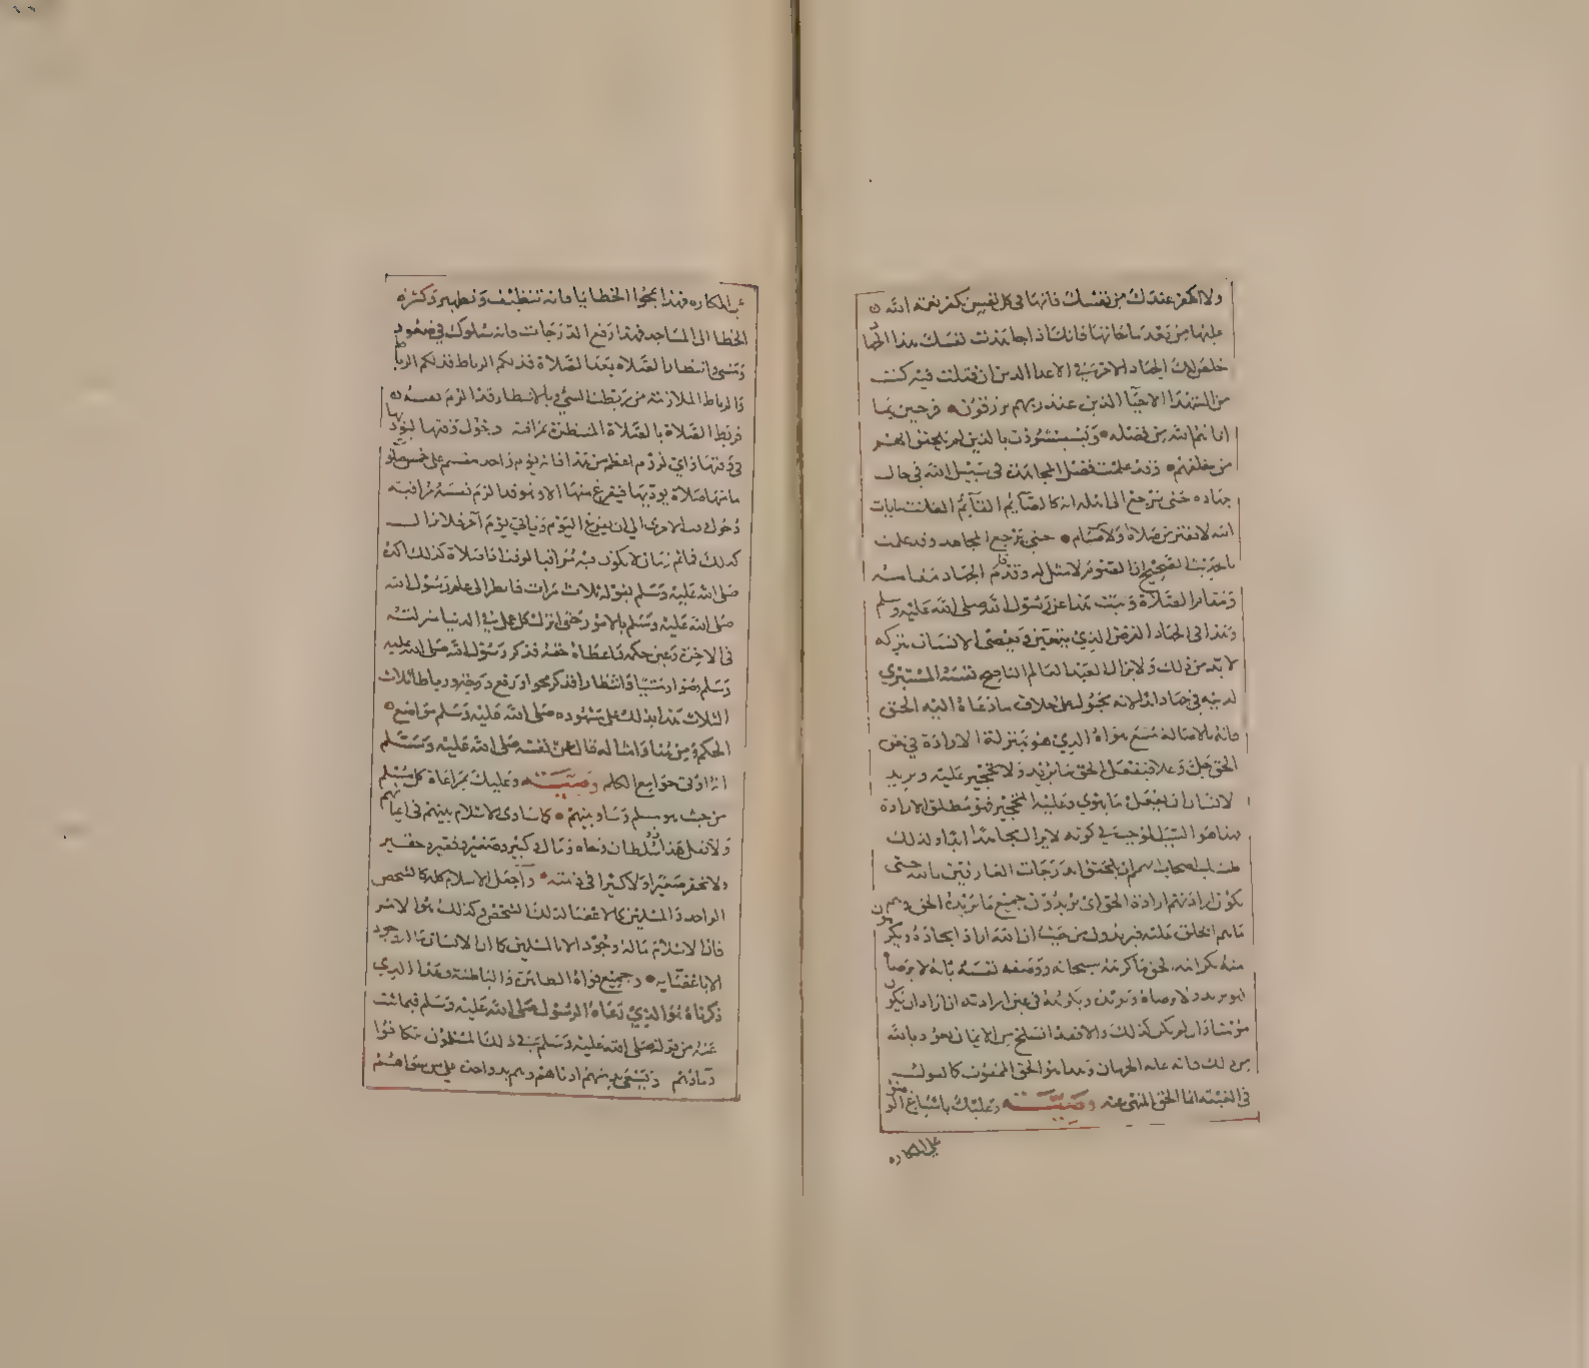 ولا اكفر عندك من نفسك فانها في كل نفس تكفر نعمة الله
عليها من بعد ما جاءتها فانك اذا جاهدت نفسك هذا الجهاد
خلص لك الجهاد الاخر في الاعدا الذين ان قتلت فيه كنت
من الشهدا الاحيا الذين عند ربهم يرزقون فرحين بما
اتاهم الله من فضله ويستبشرون بالذين لم يلحقوا بهم
من خلفهم وقد علمت فضل المجاهد في سبيل الله في حال
جهاده حتى يرجع الى اهله انه كالصايم القايم القانت بايات
الله لا يفتر من صلاة ولا صيام حتى يرجع المجاهد وقد علمت
بالحديث الصحيح ان الصوم لا مثل له وقد قام الجهاد مقامه
ومقام الصلاة وثبت هذا عن رسول الله صلى الله عليه وسلم
وهذا في الجهاد الفرض الذي يتعين ويعصى الانسان بتركه
لا بد من ذلك ولا يزال العبد العالم الناصح نفسه المستبري
لدينه في جهاد ابدا لانه مجبول على خلاف ما دعاه اليه الحق
فانه بالاصالة متبع هواه الذي هو بمنزلة الارادة في حق
الحق جل وعلا فيفعل الحق ما يريد ولا تحجير عليه ويريد
الانسان ان يفعل ما يهوي وعليه التحجير فهو مطلق الارادة
فهذا هو السبب الموجب في كونه لا يزال مجاهدا ابدا ولذلك
طلب اصحاب الهمم ان يلحقوا بدرجات العارفين بالله حتى
تكون ارادتهم ارادة الحق اي يريدون جميع ما يريده الحق وهم
ما هم الخلق عليه فيريدونه من حيث ان الله اراد ايجاده ويكرهون
منه بكراهة الحق ما كرهه سبحانه ووصف نفسه بانه لا يرضاه
فهو يريده ولا يرضاه ويريده ويكرهه في عين ارادته ان اراد ان يكون
مؤمنا وان لم يكن كذلك والا فقد انسلخ من الايمان نعوذ بالله
من ذلك فانه غاية الحرمان وهذا هو الحق الممقوت كما نقول
في الغيبة انها الحق المنهي عنه وصية وعليك باسباغ الوضو
على المكاره
على المكاره فهذا يمحوا الخطايا فانه تنظيف وتطهير وكثرة
الخطا الى المساجد فهذا رفع الدرجات فانه سلوك في صعود
ومشي وانتظار الصلاة بعد الصلاة فذلكم الرباط فذلكم الرباط
والرباط الملازمة من ربطت الشي وبالانتظار قد الزم نفسه
فربط الصلاة بالصلاة المنتظرة بمراقبة دخول وقتها ليوديها
في وقتها واي لزوم اعظم من هذا فانه يوم واحد مقسم على خمس صلوات
ما منها صلاة يوديها فيفرغ منها الا وهو قد الزم نفسه مراقبة
دخول وقت الاخرى الى ان يفرغ اليوم وياتي يوم آخر فلا يزال
كذلك فما ثم زمان لا يكون فيه مراقبا لوقت اداء صلاة كذلك اكده
صلى الله عليه وسلم بقوله ثلاث مرات فانظر الى علم رسول الله
صلى الله عليه وسلم بالامور حتى انزل كل عمل في الدنيا منزلته
في الاخرة وعين حكمه واعطاه حقه فذكر رسول الله صلى الله عليه
وسلم وضوا ومشيا وانتظارا فذكر محوا ورفع درجة ورباطا ثلاث
لثلاث هذا يدلك على شهوده صلى الله عليه وسلم مواضع
الحكم ومن هنا وامثاله قال عن نفسه صلى الله عليه وسلم
انه اوتي جوامع الكلم وصية وعليك بمراعاة كل مسلم
من حيث هو مسلم وساو بينهم كما ساوى الاسلام بينهم في اعيانهم
ولا تقل هذا ذو سلطان وجاه ومال وكبير وصغير وفقير وحقير
ولا تحقر صغيرا ولا كبيرا في ذمته واجعل الاسلام كله كالشخص
الواحد والمسلمين كالاعضا لذلك الشخص وكذلك هو الامر
فان الاسلام ما له وجود الا بالمسلمين كما ان الانسان ما له وجود
الا باعضايه وجميع قواه الظاهرة والباطنة وهذا الذي
ذكرناه هو الذي راعاه الرسول صلى الله عليه وسلم فيما ثبت
عنه من قوله صلى الله عليه وسلم في ذلك المسلمون تتكافوا
دماؤهم ويسعى بذمتهم ادناهم وهم يد واحدة على من سواهم